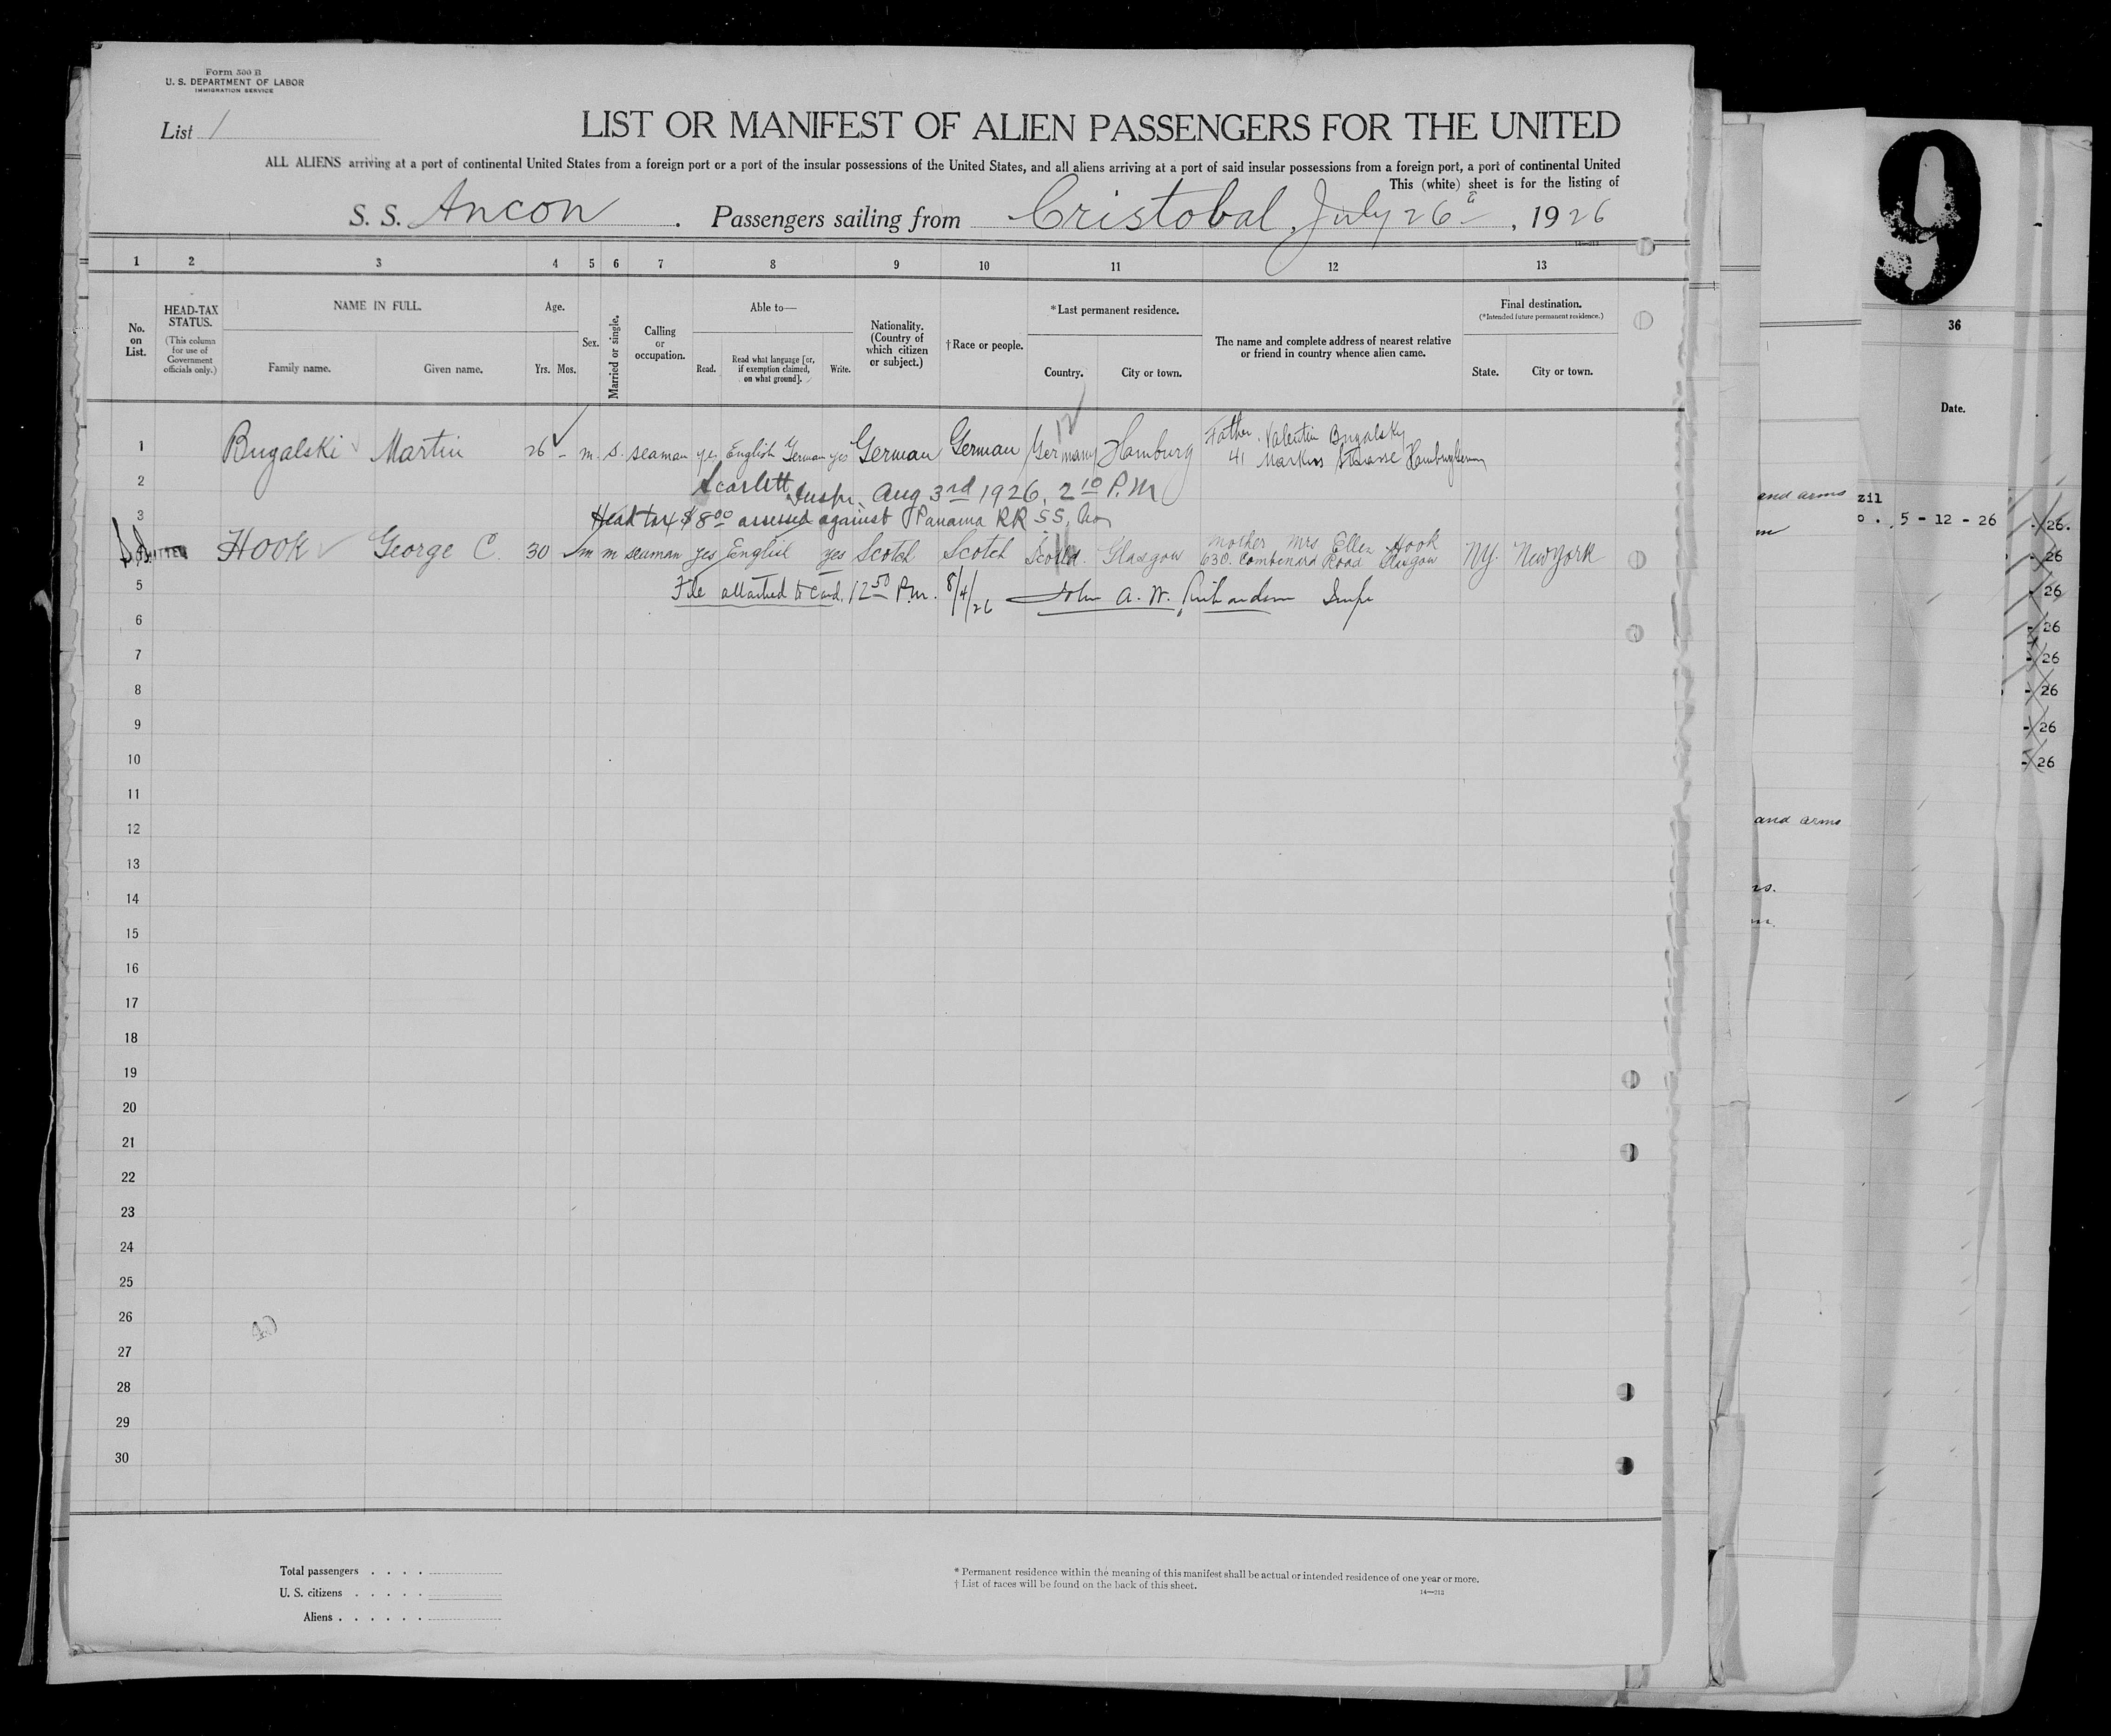 Form 500 B
U. S. DEPARTMENT OF LABOR
IMMIGRATION SERVICE
List 1
LIST OR MANIFEST OF ALIEN PASSENGERS FOR THE UNITED
ALL ALIENS arriving at a port of continental United States from a foreign port or a port of the insular possessions of the United States, and all aliens arriving at a port of said insular possessions from a foreign port, a port of continental United
This (white) sheet is for the listing of
S. S. Ancon . Passengers sailing from Cristobal, July 26th, 1926
14—213
1 2 3 4 5 6 7 8 9 10 11 12 13
No. on List.
HEAD-TAX STATUS.
(This column for use of Government officials only.)
NAME IN FULL.
Family name. Given name.
Age.
Yrs. Mos.
Sex.
Married or single.
Calling or occupation.
Able to—
Read. Read what language [or, if exemption claimed, on what ground]. Write.
Nationality. (Country of which citizen or subject.)
† Race or people.
* Last permanent residence.
Country. City or town.
The name and complete address of nearest relative or friend in country whence alien came.
Final destination.
(* Intended future permanent residence.)
State. City or town.
1 Bugalski Martin 26 - m. S. seaman yes English German yes German German Germany Hamburg Father. Valentin Bugalsky
41 Markus Strasse Hamburg
2 Scarlett Inspr. Aug 3rd 1926, 2 10 P.M
3 Head tax $8 00 assessed against Panama RR SS. Co
ADMITTED HOOK George C. 30 m m seaman yes English yes Scotch Scotch Glasgow mother Mrs Ellen Hook
630. Road Glasgow NY. New York
5 File attached to card. 12 50 P.m. 8/4/26 John A. W. Richardson Insp
6
7
8
9
10
11
12
13
14
15
16
17
18
19
20
21
22
23
24
25
26
27
28
29
30
Total passengers . . . .
U. S. citizens . . . . .
Aliens . . . . . .
* Permanent residence within the meaning of this manifest shall be actual or intended residence of one year or more.
† List of races will be found on the back of this sheet.
14—213
9
36
Date.
and arms
zil
o . 5 - 12 - 26
m
and arms
rs.
m.
26.
- 26
- 26
- 26
- 26
- 26
- 26
- 26